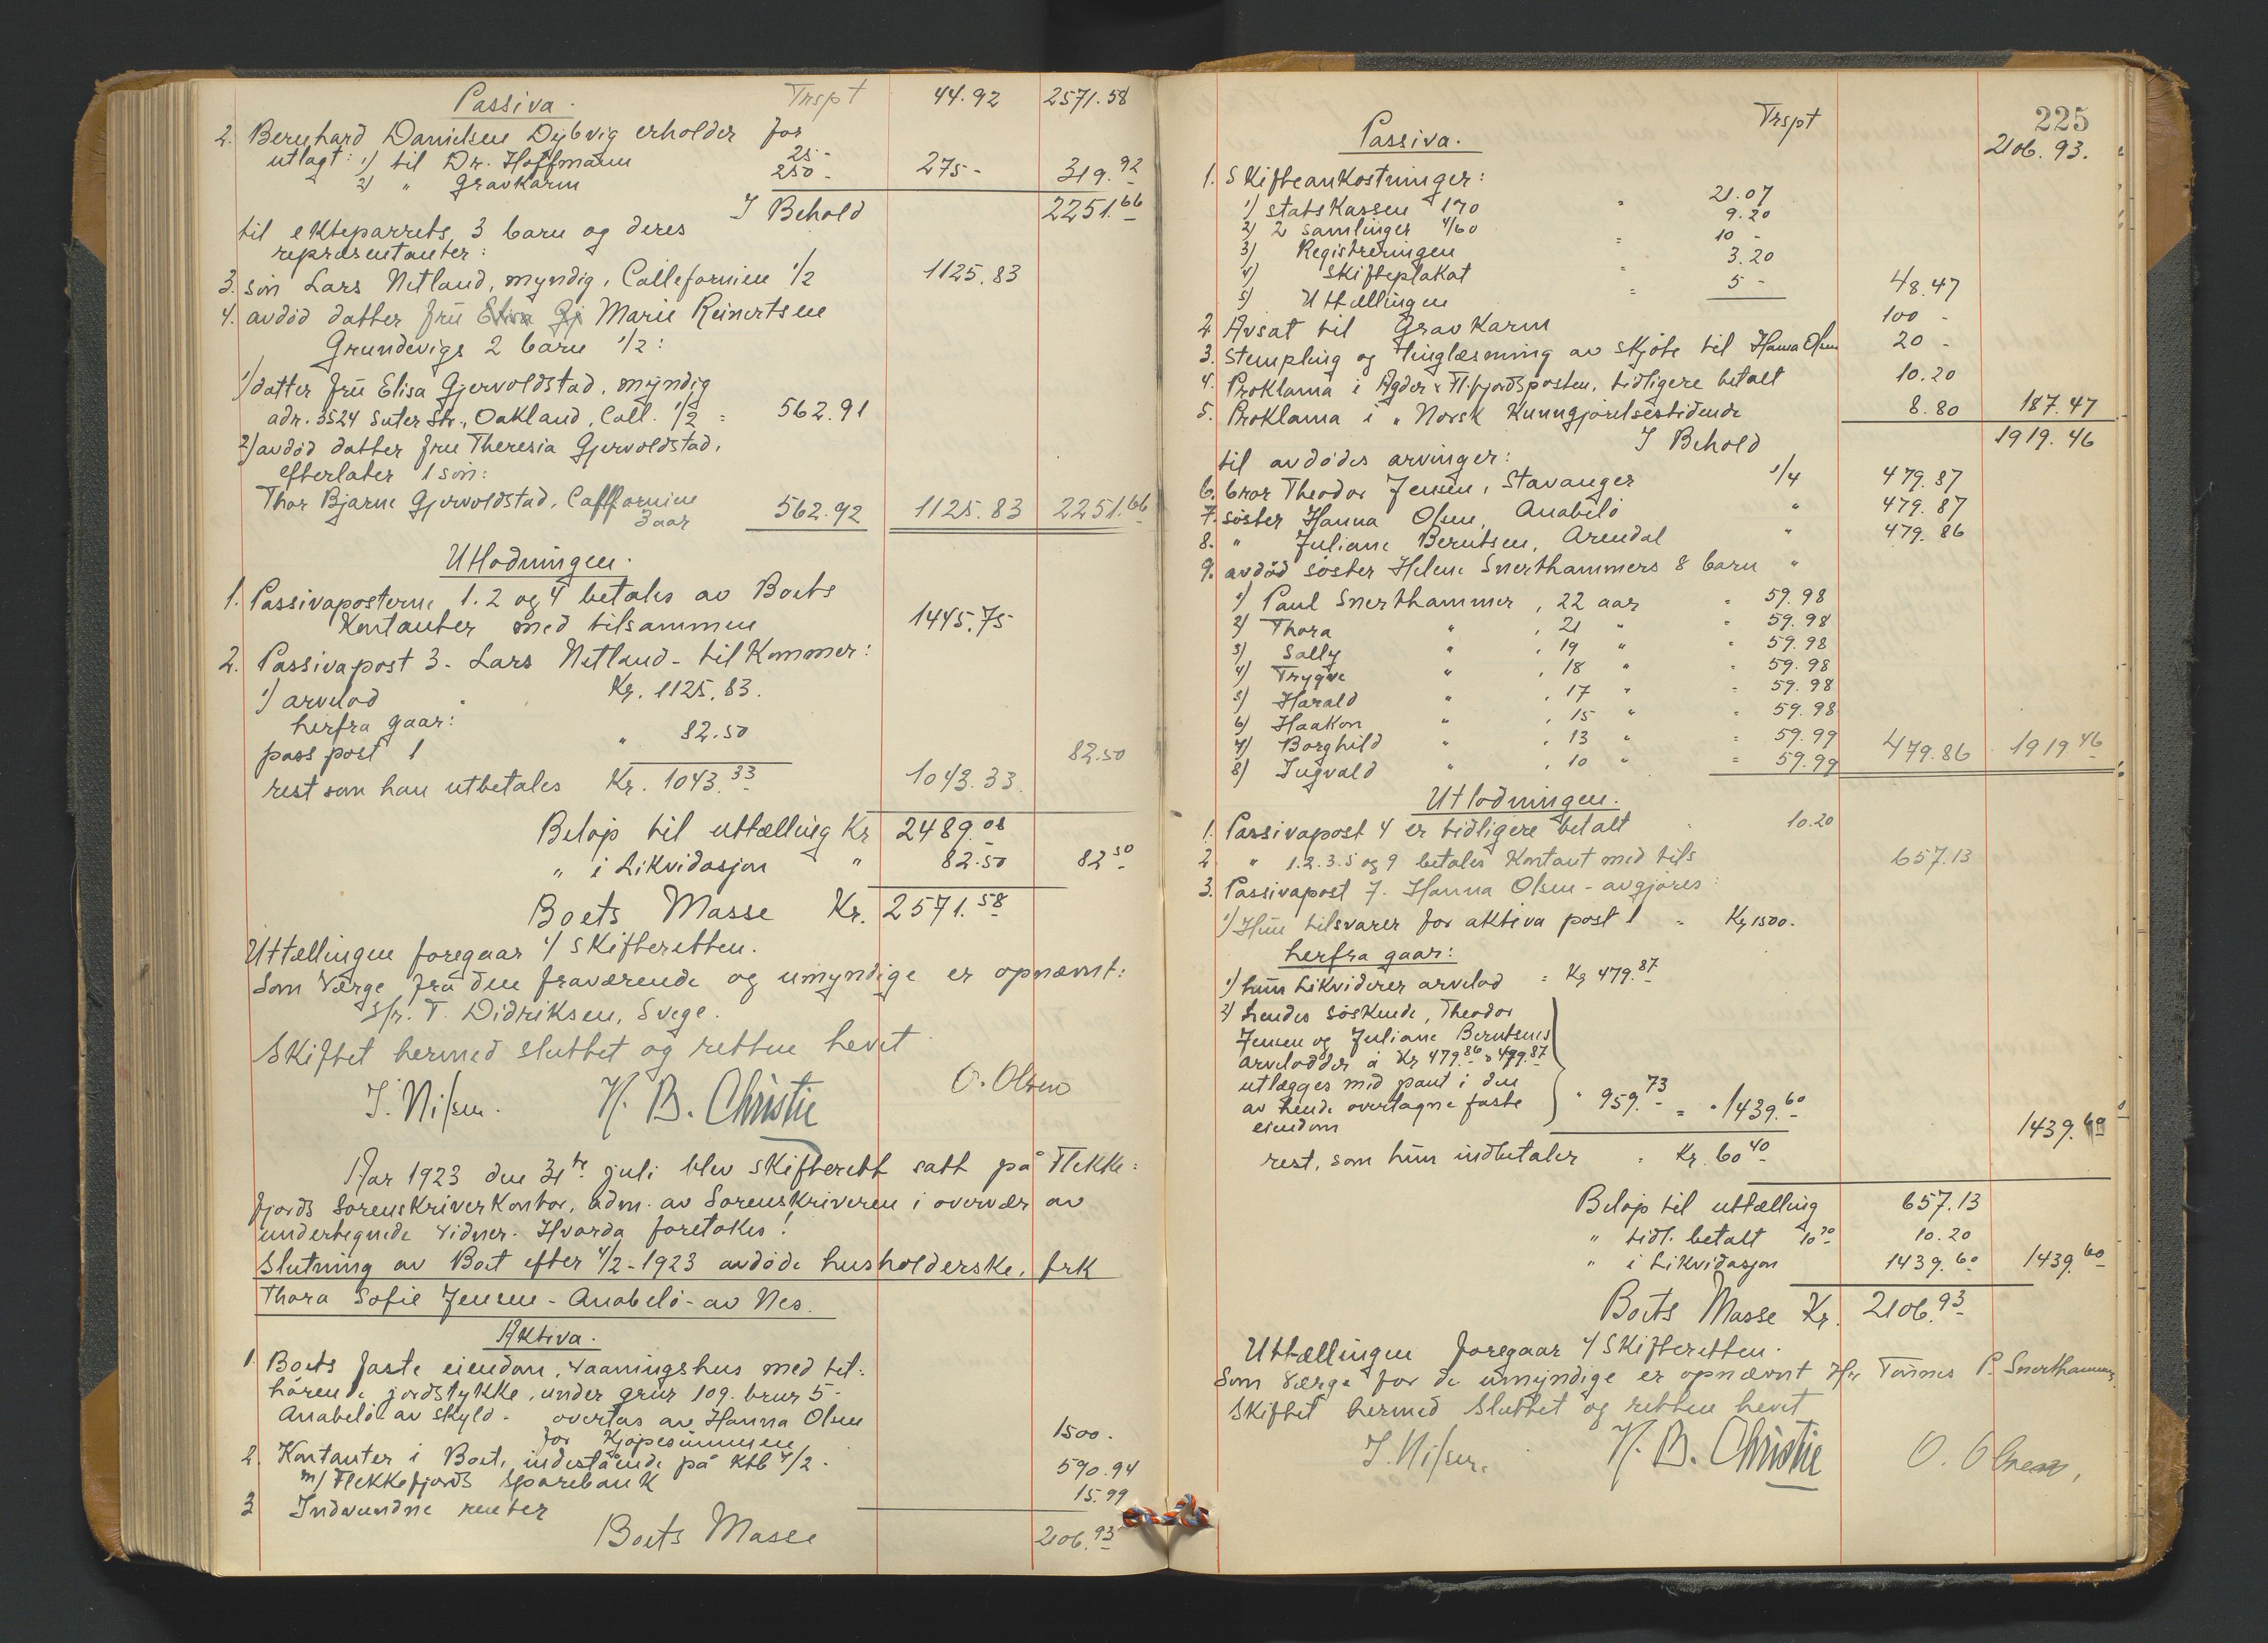 Passiva. Trspt 44.92 2571.58
2. Bernhard Danielsen Dybvig erholder for
utlagt: 1) til Dr. Hoffmann 25 -
2) " Gravkarm 250 - 275 - 319.92
I Behold 2251.66
til ekteparrets 3 barn og deres
repræsentanter:
3. søn Lars Netland, myndig, Callefornien 1/2 1125.83
4. avdød datter fru Elisa Gj Marie Reinertsen
Grundevigs 2 barn 1/2:
1) datter fru Elisa Gjervoldstad, myndig
adr. 3524 Suter Str., Oakland, Call. 1/2 = 562.91
2) avdød datter fru Theresia Gjervoldstad,
efterlater 1 søn:
Thor Bjarne Gjervoldstad, Callfornien
3 aar 562.92 1125.83 2251.66
Utlodningen.
1. Passivaposterne 1. 2 og 4 betales av Boets
Kontanter med tilsammen 1445.75
2. Passivapost 3 - Lars Netland - tilkommer:
1) arvelod " Kr. 1125.83.
herfra gaar:
pass post 1 " 82.50 82.50
rest som han utbetales Kr. 1043.33 1043.33
Beløp til uttælling Kr 2489.08
" i Likvidasjon " 82.50 82.50
Boets Masse Kr. 2571.58
Uttællingen foregaar i/ Skifteretten.
Som Værge for den fraværende og umyndige er opnævnt:
Hr. T. Didriksen, Svege.
Skiftet hermed sluttet og retten hevet
J. Nilsen. H. B. Christie O. Olsen
Aar 1923 den 31te juli blev skifterett satt på Flekke=
fjords Sorenskriverkontor, adm. av Sorenskriveren i overvær av
undertegnede vidner. Hvorda foretokes!
Slutning av Boet efter 4/2 - 1923 avdøde husholderske, frk
Thora Sofie Jensen - Anabelø - av Nes.
Aktiva.
1. Boets faste eiendom, vaaningshus med til=
hørende jordstykke, under gnr 109. brnr 5 -
Anabelø av skyld - overtas av Hanna Olsen
for Kjøpesummen 1500.
2. Kontanter i Boet, indestående på Ktb 4/2 -
m/ Flekkefjords Sparebank 590.94
3 Indvundne renter 15.99
Boets Masse 2106.93
225
Passiva. Trspt 2106.93.
1. Skifteomkostninger:
1) statskassen 170 " 21.07
2) 2 samlinger 4/60 9.20
3) Registreringen = 10 -
4) Skifteplakat " 3.20
5) Uttællingen = 5 - 48.47
2 Avsat til Gravkarm 100 -
3. Stempling og tinglæsning av skjøte til Hanna Olsen 20 -
4. Proklama i Agder & Fl.fjordsposten, tidligere betalt 10.20
5. Proklama i "Norsk Kunngjørelsestidende 8.80 187.47
I Behold 1919.46
til avdødes arvinger:
6. bror Theodor Jensen, Stavanger 1/4 479.87
7. søster Hanna Olsen, Anabelø " 479.87
8. " Juliane Berntsen, Arendal " 479.86
9. avdød søster Helene Snerthammers 8 barn "
1) Paul Snerthammer, 22 aar " 59.98
2) Thora " , 21 " " 59.98
3) Sally " , 19 " " 59.98
4) Trygve " , 18 " = 59.98
5) Harald " , 17 " = 59.98
6) Haakon " , 15 " = 59.98
7) Borghild " , 13 " = 59.99
8) Ingvald " , 10 " = 59.99 479.86 1919.46
Utlodningen.
1. Passivapost 4 er tidligere betalt " 10.20
2 " 1.2.3.5 og 9 betales Kontant med tils 657.13
3. Passivapost 7. Hanna Olsen - avgjøres:
1) Hun tilsvarer for aktiva post 1 = Kr 1500.
herfra gaar:
1) hun likviderer arvelod = Kr 479.87
2) hendes søskende, Theodor
Jensen og Juliane Berntsens
arvelodder à Kr 479.86 & 479.87
utlægges med pant i den
av hende overtagne faste " 959.73 = " 1439.60
eiendom 1439.60
rest, som hun indbetaler " Kr. 60.40
Beløp til uttælling 657.13
" tidl. betalt 10.20 10.20
" i Likvidasjon 1439.60 1439.60
Boets Masse Kr. 2106.93
Uttællingen foregaar i/ Skifteretten.
Som Værge for de umyndige er opnævnt Hr Tønnes P. Snerthammer.
Skiftet hermed sluttet og retten hevet
J. Nilsen. H. B. Christie O. Olsen,